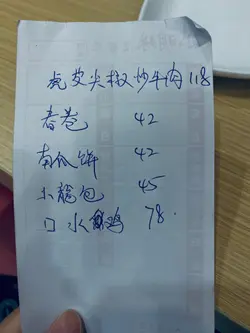 虎皮尖椒炒牛肉 118
春卷 42
南瓜饼 42
小籠包 45
口水鸡 78.